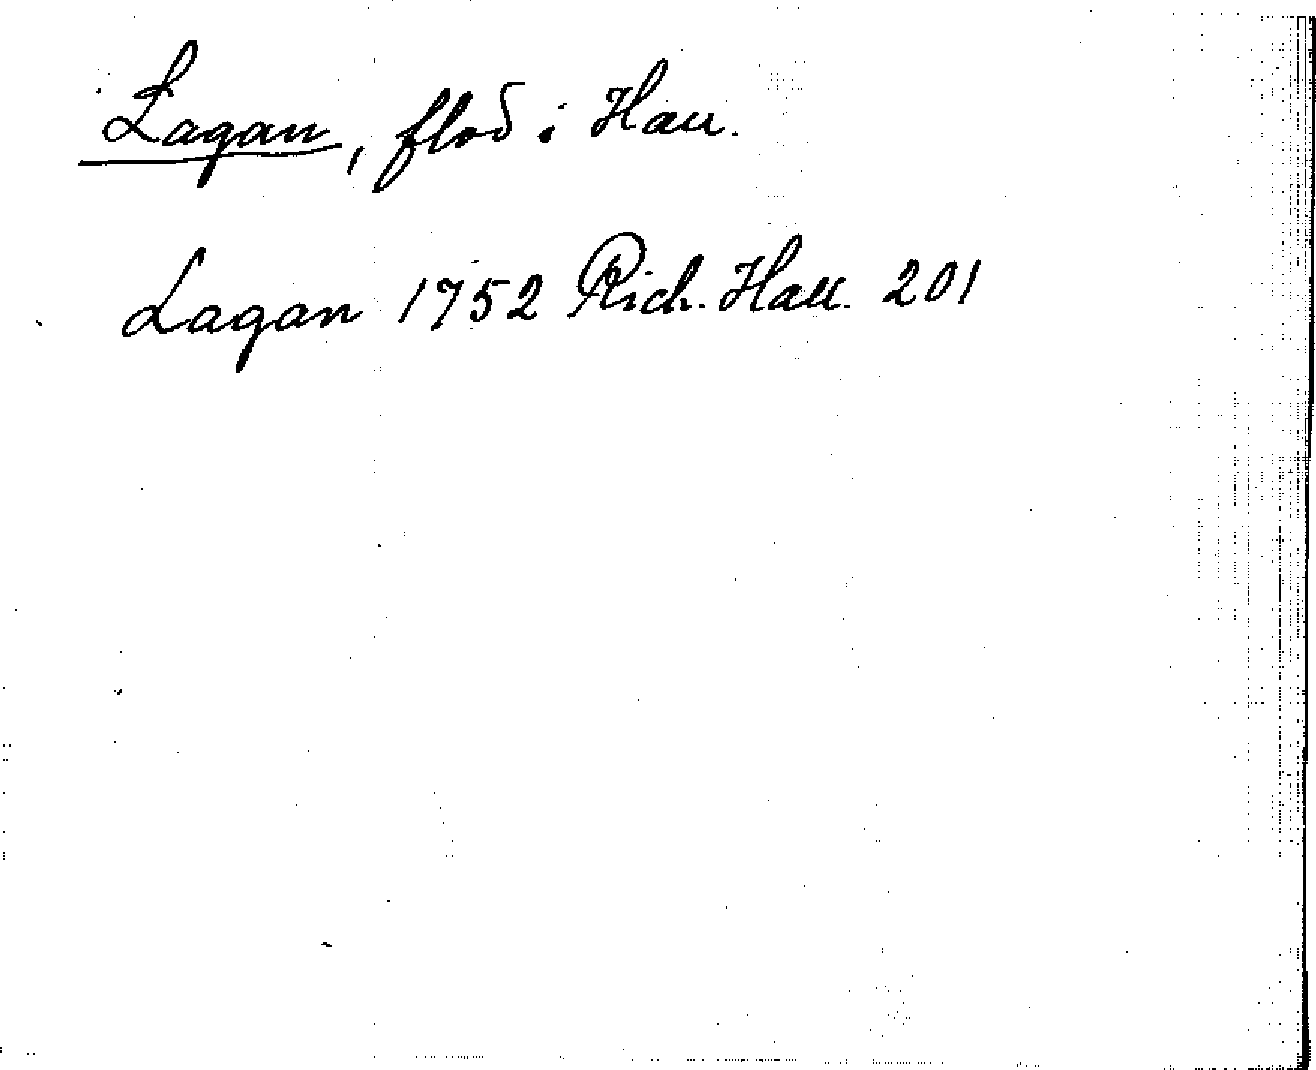 Lagan, flod i Hall.
Lagan 1752 Rich. Hall. 201